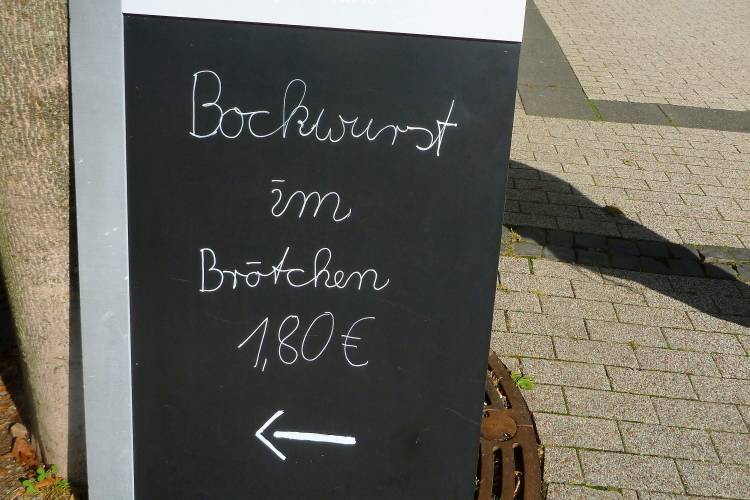 Bockwurst
im
Brötchen
1,80€